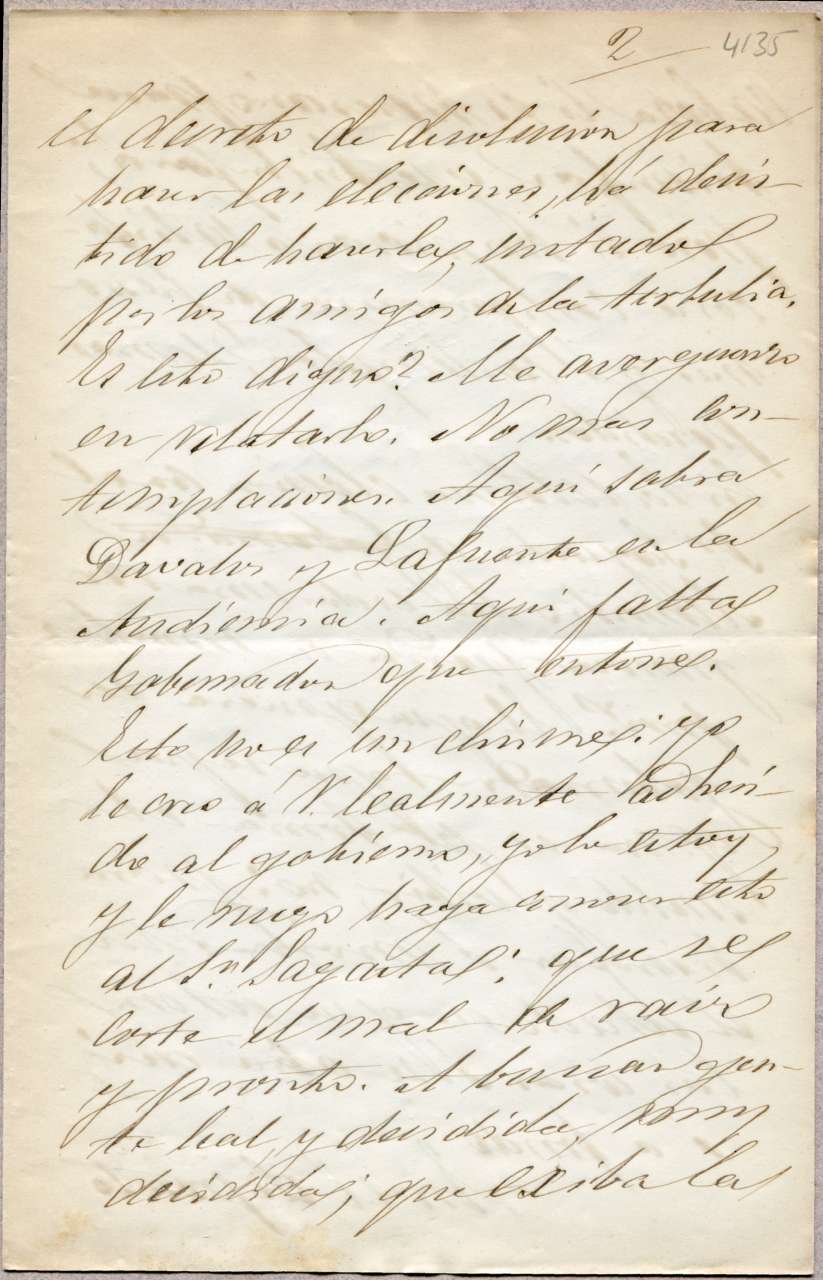 2 4135
el decreto de disolucion para
hacer las elecciones, há decis-
tido de hacerlas, instado
por los amigos de la tertulia.
Es esto digno? Me averguenzo
en relatarlo. No mas con-
templaciones. Aquí sobra
Davalos y Lafuente en la
Audiencia. Aquí falta
Gobernador que entone.
Esto no es un chisme; yo
le creo á V. lealmente adheri-
do al gobierno, yo lo estoy
y le ruego haga conocer esto
al Sr. Sagasta; que se
corte el mal de raiz
y pronto. A buscar gen-
te leal, y decidida, muy
decidida; que exiba la